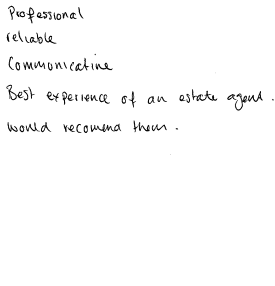 Professional
reliable
Communicative
Best experience of an estate agent.
would recomend them.